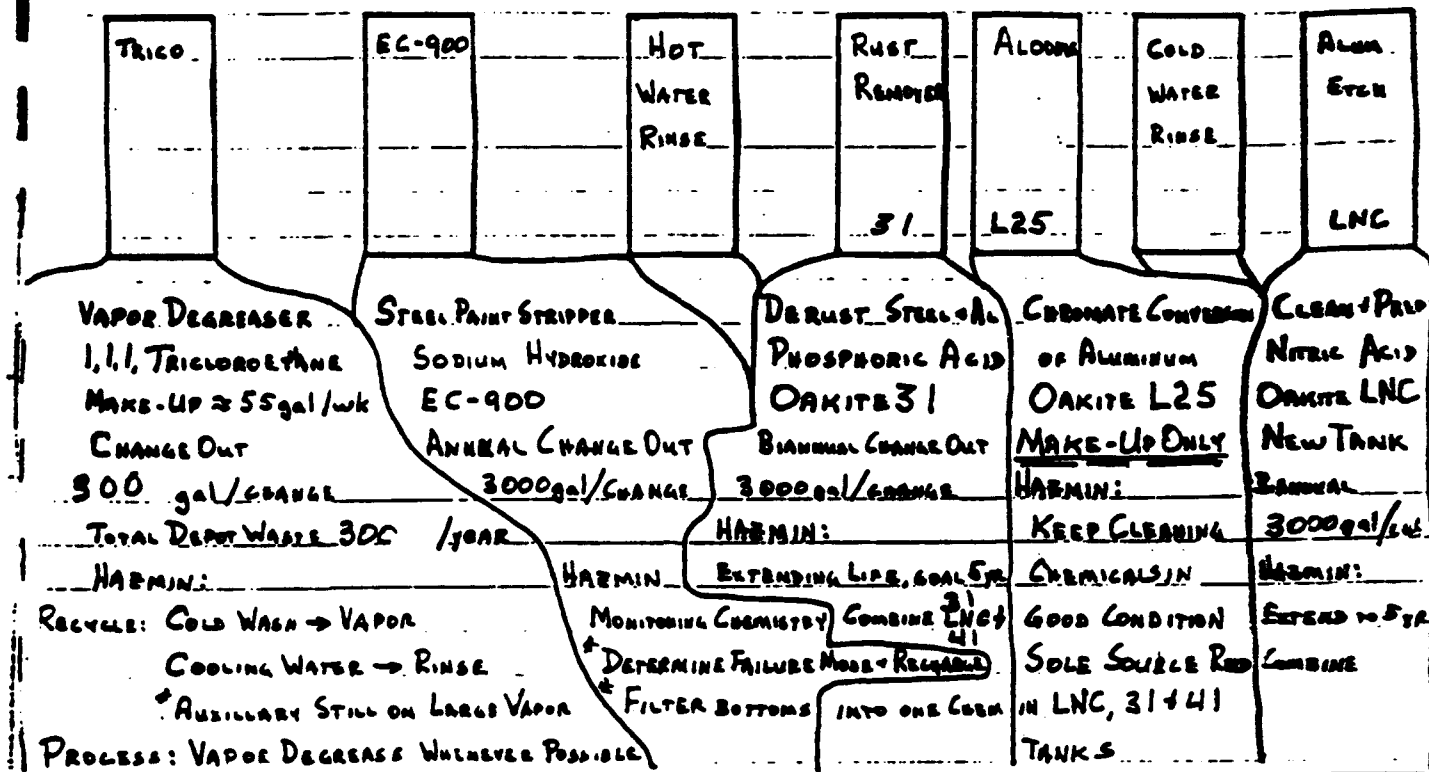 TRICO
EC-900
HOT
WATER
RINSE
RUST
REMOVER
31
ALODINE
L25
COLD
WATER
RINSE
ALUM
ETCH
LNC
VAPOR DEGREASER
1,1,1, TRICLOROETHANE
MAKE-UP ≈ 55gal/wk
CHANGE OUT
300 gal/CHANGE
TOTAL DEPOT WASTE 300 /YEAR
HAZMIN:
RECYCLE: COLD WASH → VAPOR
COOLING WATER → RINSE
*AUXILLARY STILL ON LARGE VAPOR
PROCESS: VAPOR DEGREASE WHENEVER POSSIBLE
STEEL PAINT STRIPPER
SODIUM HYDROXIDE
EC-900
ANNUAL CHANGE OUT
3000gal/CHANGE
HAZMIN
MONITORING CHEMISTRY
*DETERMINE FAILURE MODE + RECHARGE
*FILTER BOTTOMS
DERUST STEEL + AL
PHOSPHORIC ACID
OAKITE 31
BIANNUAL CHANGE OUT
3000gal/CHANGE
HAZMIN:
EXTENDING LIFE, GOAL 5YR
COMBINE LNC + 31 41
INTO ONE CHEM
CHROMATE CONVERSION
OF ALUMINUM
OAKITE L25
MAKE-UP ONLY
HAZMIN:
KEEP CLEANING
CHEMICALS IN
GOOD CONDITION
SOLE SOURCE
IN LNC, 31 + 41
TANKS
CLEAN + PREP
NITRIC ACID
OAKITE LNC
NEW TANK
BIANNUAL
3000gal/
HAZMIN:
EXTEND TO 5 YR
COMBINE